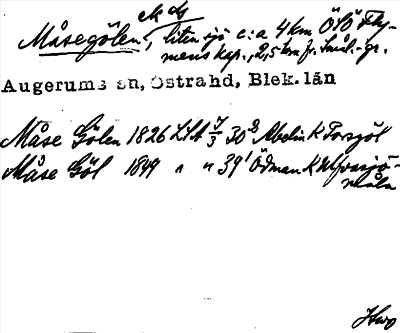 Måsegölen, liten sjö c:a 4 km ÖSÖ Fly-
mens kap., 2,5 km fr. Smål.-gr.
Augerums sn, Östra hd, Blek. län
Måse Gölen 1826 LSA 7/3 30 Abelin K Torsjöl
Måse Göl 1849 " " 39 Ödman K Ulfvasjö-
måla